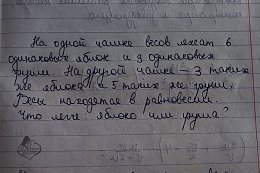 На одной чашке весов лежат 6
одинаковых яблок и 3 одинаковых
груши. На другой чашке – 3 таких
же яблока и 5 таких же груш.
Весы находятся в равновесии.
Что легче: яблоко или груша?